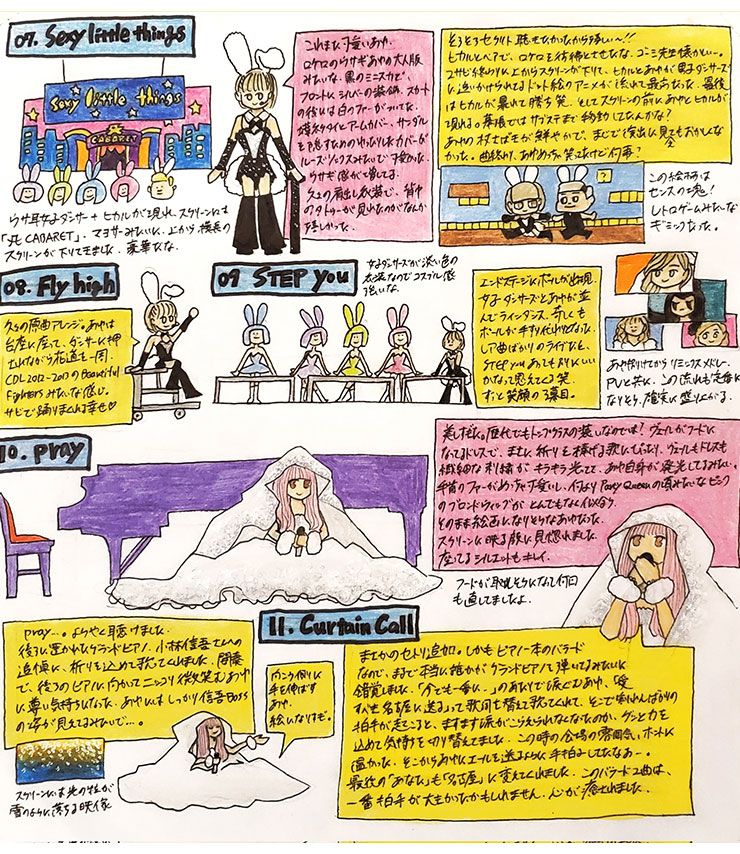 07. Sexy little things
Sexy little things
CABARET
ウサ耳女子ダンサー + ヒカルが現れ、スクリーンにも
「J'L CABARET」。
スクリーンが下りてきました。豪華だな。
これまた可愛いあゆ。
ロケロのウサギあゆの大人版
みたいな。黒のミニスカで、
フロントにシルバーの装飾、スカート
の後ろには白のファーがついてた。
ウサギ感が増してる。
久々の肩出し衣装で、背中
のタトゥーが見れたのがなんか
嬉しかった。
そろそろセクリト聴きたかったから嬉しい〜!!
ヒカルとペアで、ロケロを彷彿とさせたな。ゴーミ先生懐かしい〜。
はヒカルが暴れて勝つ笑。そしてスクリーンの前にあゆとヒカルが
現れる。
?
この絵柄は
センスの塊!
レトロゲームみたいな
ギミックだった。
08. Fly high
久々の原曲アレンジ。あゆは
台座に座って、ダンサーに押
されながら花道を一周。
CDL 2012-2013のBeautiful
Fightersみたいな感じ。
サビで踊りまくれる幸せ♡
09 STEP you
女子ダンサーズが淡い色の
衣装なのでコスプレ感
強いな。
エンドステージにポールが出現。
女子ダンサーズとあゆが並
んでラインダンス。
ポールが手すり代わりだった。
レア曲ばかりのライブだと、
STEP youあってもよりいい
かなって思えてくる笑。
ずっと笑顔の3曲目。
あゆ捌けてからリミックスメドレー。
PVと共に。この流れも定番に
なりそう。確実に盛り上がる。
10. pray
美しすぎた。歴代でもトップクラスの装いなのでは？ヴェールがフードに
なってるドレスで、まさに祈りを捧げる歌にぴったり。ヴェールもドレスも
繊細な刺繍がキラキラ光ってて、あゆ自身が発光してるみたい。
手首のファーがめっちゃ可愛いし、何よりParty Queenの頃みたいなピンク
のブロンドウィッグがとんでもなく似合う。
そのまま絵画になりそうなあゆだった。
スクリーンに映る度に見惚れました。
座ってるシルエットもキレイ。
フードが取れそうになって何回
も直してましたよ。
pray…。ようやく聴けました。
後ろに置かれたグランドピアノ。小林信吾さんへの
追悼に、祈りを込めて歌ってくれました。間奏
で、後ろのピアノに向かってニッコリ微笑むあゆ
に尊い気持ちになった。あゆにはしっかり信吾BOSS
の姿が見えてるみたいで…。
スクリーンには光の粒が
雪のように落ちる映像
11. Curtain Call
センター側に
手を伸ばす
あゆ。
絵になりすぎ。
まさかのセトリ追加。しかもピアノ一本のバラード
なので、まるで本当に誰かがグランドピアノで弾いてるみたいに
錯覚しました。「今でも一番に…」のあたりで涙ぐむあゆ、「愛
すべき名古屋に送る」って歌詞を替えて歌ってくれて、そこで割れんばかりの
拍手が起こると、ますます涙がこらえられなくなったのか、グッと力を
込めて気持ちを切り替えてました。この時の会場の雰囲気、ホントに
温かった。そこからあゆにエールを送るように手拍子してたなあ〜。
最後の「あなた」も「名古屋」に変えてくれました。このバラード2曲は、
一番拍手が大きかったかもしれません。心が癒されました。